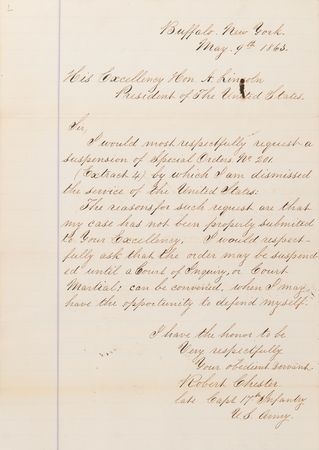 Buffalo. New York.
May. 9th 1863.
His Excellency Hon A. Lincoln
President of The United States.
Sir,
I would most respectfully request a
suspension of Special Orders No 201
(Extract 4) by which I am dismissed
the service of the United States:
The reasons for such request are that
my case has not been properly submitted
to Your Excellency, I would respect-
fully ask that the order may be suspend
ed until a Court of Inquiry, or Court
Martial; can be convened, when I may
have the opportunity to defend myself.
I have the honor to be
Very respectfully
Your obedient servant
Robert Chester
late Capt 17th Infantry
U.S. Army.